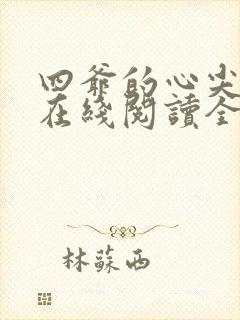 四爺的心尖
在綫閱讀全
林蘇西